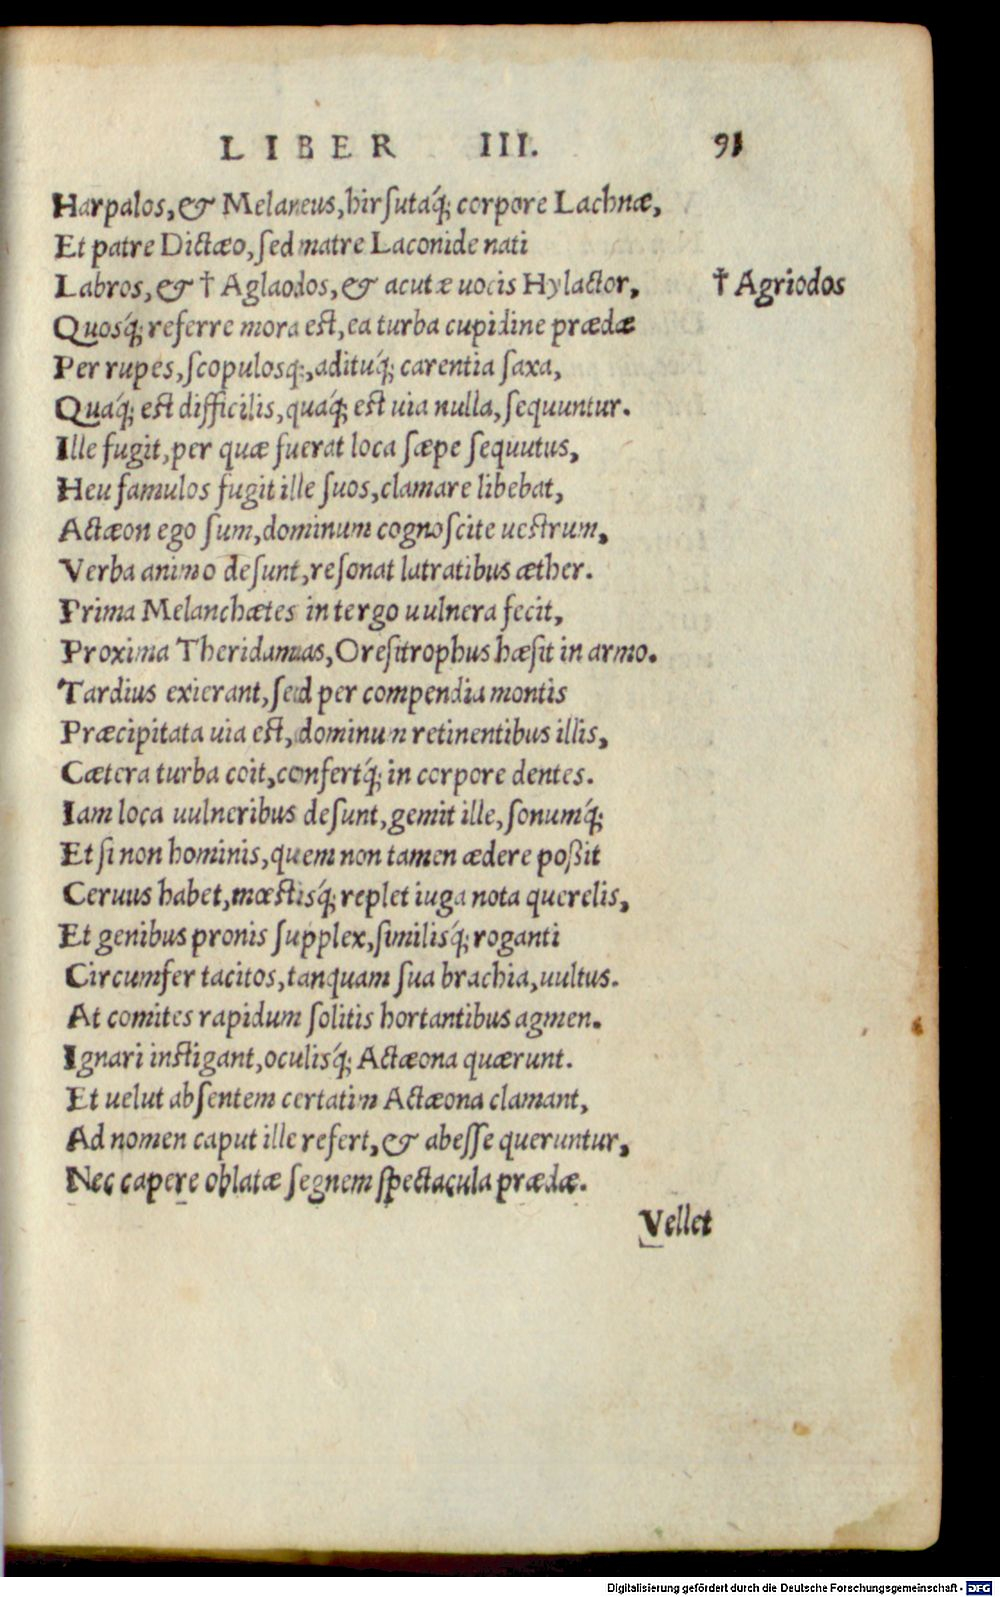 LIBER III. 91
Harpalos, & Melaneus, hirſutaq́; corpore Lachnæ,
Et patre Dictæo, ſed matre Laconide nati
Labros, & † Aglaodos, & acutæ uocis Hylactor, † Agriodos
Quosq́; referre mora eſt, ea turba cupidine prædæ
Per rupes, ſcopulosq;, adituq́; carentia ſaxa,
Quaq́; eſt difficilis, quaq́; eſt uia nulla, ſequuntur.
Ille fugit, per quæ fuerat loca ſæpe ſequutus,
Heu famulos fugit ille ſuos, clamare libebat,
Actæon ego ſum, dominum cognoſcite ueſtrum,
Verba animo deſunt, reſonat latratibus æther.
Prima Melanchætes in tergo uulnera fecit,
Proxima Theridamas, Oreſitrophus hæſit in armo.
Tardius exierant, ſed per compendia montis
Præcipitata uia eſt, dominum retinentibus illis,
Cætera turba coit, confertq́; in corpore dentes.
Iam loca uulneribus deſunt, gemit ille, ſonumq́;
Et ſi non hominis, quem non tamen ædere poßit
Ceruus habet, mœſtisq́; replet iuga nota querelis,
Et genibus pronis ſupplex, ſimilisq́; roganti
Circumfer tacitos, tanquam ſua brachia, uultus.
At comites rapidum ſolitis hortantibus agmen.
Ignari inſtigant, oculisq́; Actæona quærunt.
Et uelut abſentem certatim Actæona clamant,
Ad nomen caput ille refert, & abeſſe queruntur,
Nec capere oblatæ ſegnem ſpectacula prædæ.
Vellet
Digitalisierung gefördert durch die Deutsche Forschungsgemeinschaft - DFG